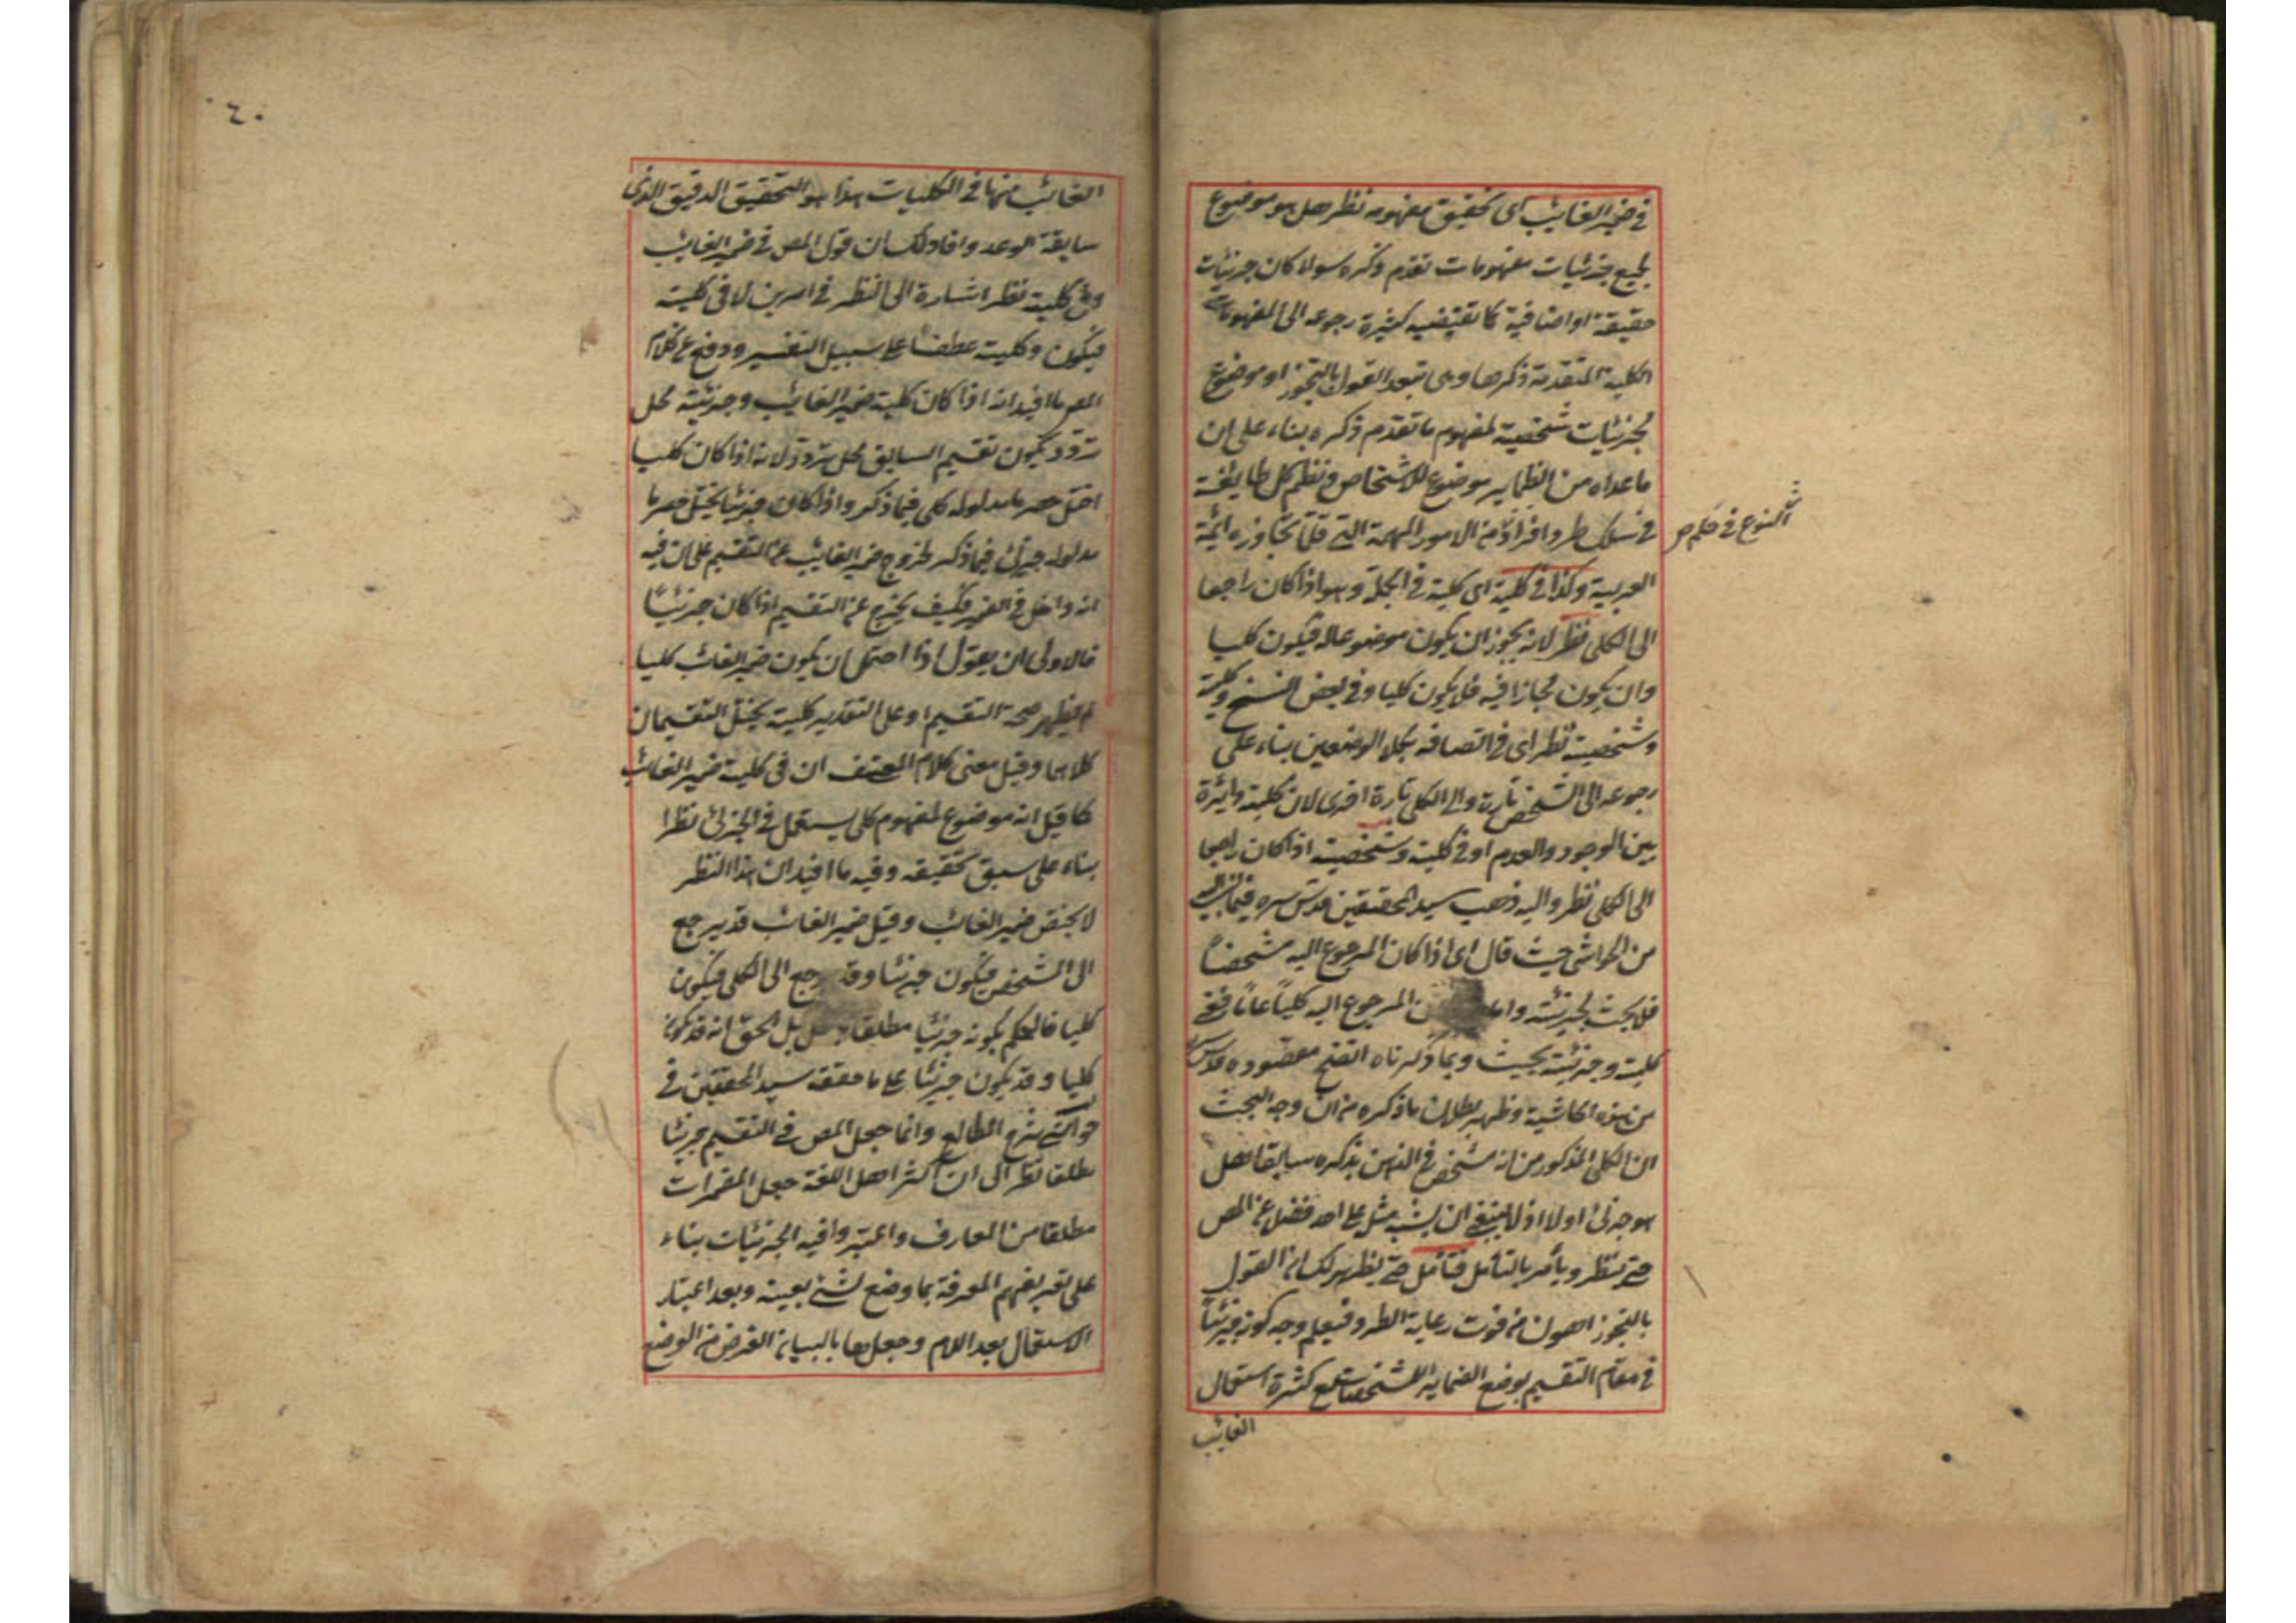 في ضمير الغايب اى تحقيق مفهومه نظر هل هو موضوع
لجميع جزئيات مفهومات تقدم ذكره سواء كان جزئيات
حقيقة او اضافية كما تقتضيه كثيرة رجوعه الى المفهومات
الكلية المتقدمة ذكرها وهى تبعد القول بالتجوز او موضوع
لجزئيات شخصية لمفهوم ما تقدم ذكره بناء على ان
ما عداه من الضماير موضوع للاشخاص ونظم كل طايفة
في سلك طرد افراده من الامور المهمة التي قلما تجاوزه ائمة
العربية وكذا في كلية اى كلية في الجملة وهو اذا كان راجعا
الى الكلى نظر لانه يجوز ان يكون موضوعا له فيكون كليا
وان يكون مجازا فيه فلا يكون كليا وفى بعض النسخ وكلية
وشخصية نظر اى في اتصافه بكلا الوضعين بناء على
رجوعه الى الشخص تارة والى الكلى تارة اخرى لان كلية دايرة
بين الوجود والعدم او في كلية وشخصية اذا كان راجعا
الى الكلى نظر واليه ذهب سيد المحققين قدس سره فيما نسب اليه
من الحواشى حيث قال اى اذا كان المرجوع اليه مشخصاً
فلا بحث لجزئيته واما المرجوع اليه كلياً عاماً ففى
كليته وجزئيته بحيث وبما ذكرناه اتضح مقصوده قدس سره
من هذه الحاشية وظهر بطلان ما ذكره من ان وجه البحث
ان الكلى المذكور من انه مشخص في الذهن بذكره سابقا هل
هو جزئى اولا اذ لا ينبغى ان يشبه مثل على احد فضلا عن المص
حتى ينظر ويأمر بالتأمل فتأمل حتى يظهر لك ان القول
بالتجوز اهون من فوت رعاية الطرد فيعلم وجه كونه جزئياً
في مقام التقسيم بوضع الضماير للمشخصات مع كثرة استعمال
الغايب
النوع في حكم ص
٤٠
الغائب منها في الكليات هذا هو التحقيق الدقيق الذى
سابقة الوعد وافاد لك ان قول المص في ضمير الغايب
وفى كليته نظر اشارة الى النظر في امرين لا فى كليته
فيكون وكليته عطفاً على سبيل التفسير ودفع عن كلام
المص ما افيد انه اذا كان كلية ضمير الغايب وجزئيته محل
تردد يكون تقسيم السابق محل تردد لانه اذا كان كليا
اختل حصر ما مدلوله كلى فيما ذكر واذا كان جزئيا يختل حصر ما
مدلوله جزئى فيما ذكر لخروج ضمير الغايب عن التقسيم على ان فيه
انه داخل في الضمير فكيف يخرج عن التقسيم اذا كان جزئياً
فالاولى ان يقول اذا احتمل ان يكون ضمير الغائب كليا
لم يظهر صحة التقسيم او على التقدير كليته يختل التقسيمان
كلاهما وقيل معنى كلام المصنف ان في كلية ضمير الغائب
كما قيل انه موضوع لمفهوم كلى يستعمل في الجزئى نظرا
بناء على سبق تحقيقه وفيه ما افيد ان هذا النظر
لا يختص ضمير الغائب وقيل ضمير الغائب قد يرجع
الى الشخص فيكون جزئيا وقد يرجع الى الكلى فيكون
كليا فالحكم بكونه جزئيا مطلقا بل الحق انه قد يكون
كليا وقد يكون جزئيا على ما حققه سيد المحققين في
حواشى شرح المطالع وانما جعل المص في التقسيم جزئيا
مطلقا نظرا الى ان اكثر اهل اللغة جعل المضمرات
مطلقا من المعارف واعتبروا فيه الجزئيات بناء
على تعريفهم المعرفة بما وضع لشئ بعينه وبعد اعتبار
الاستعمال بعد اللام وجعلها بالبيان الغرض من الوضع